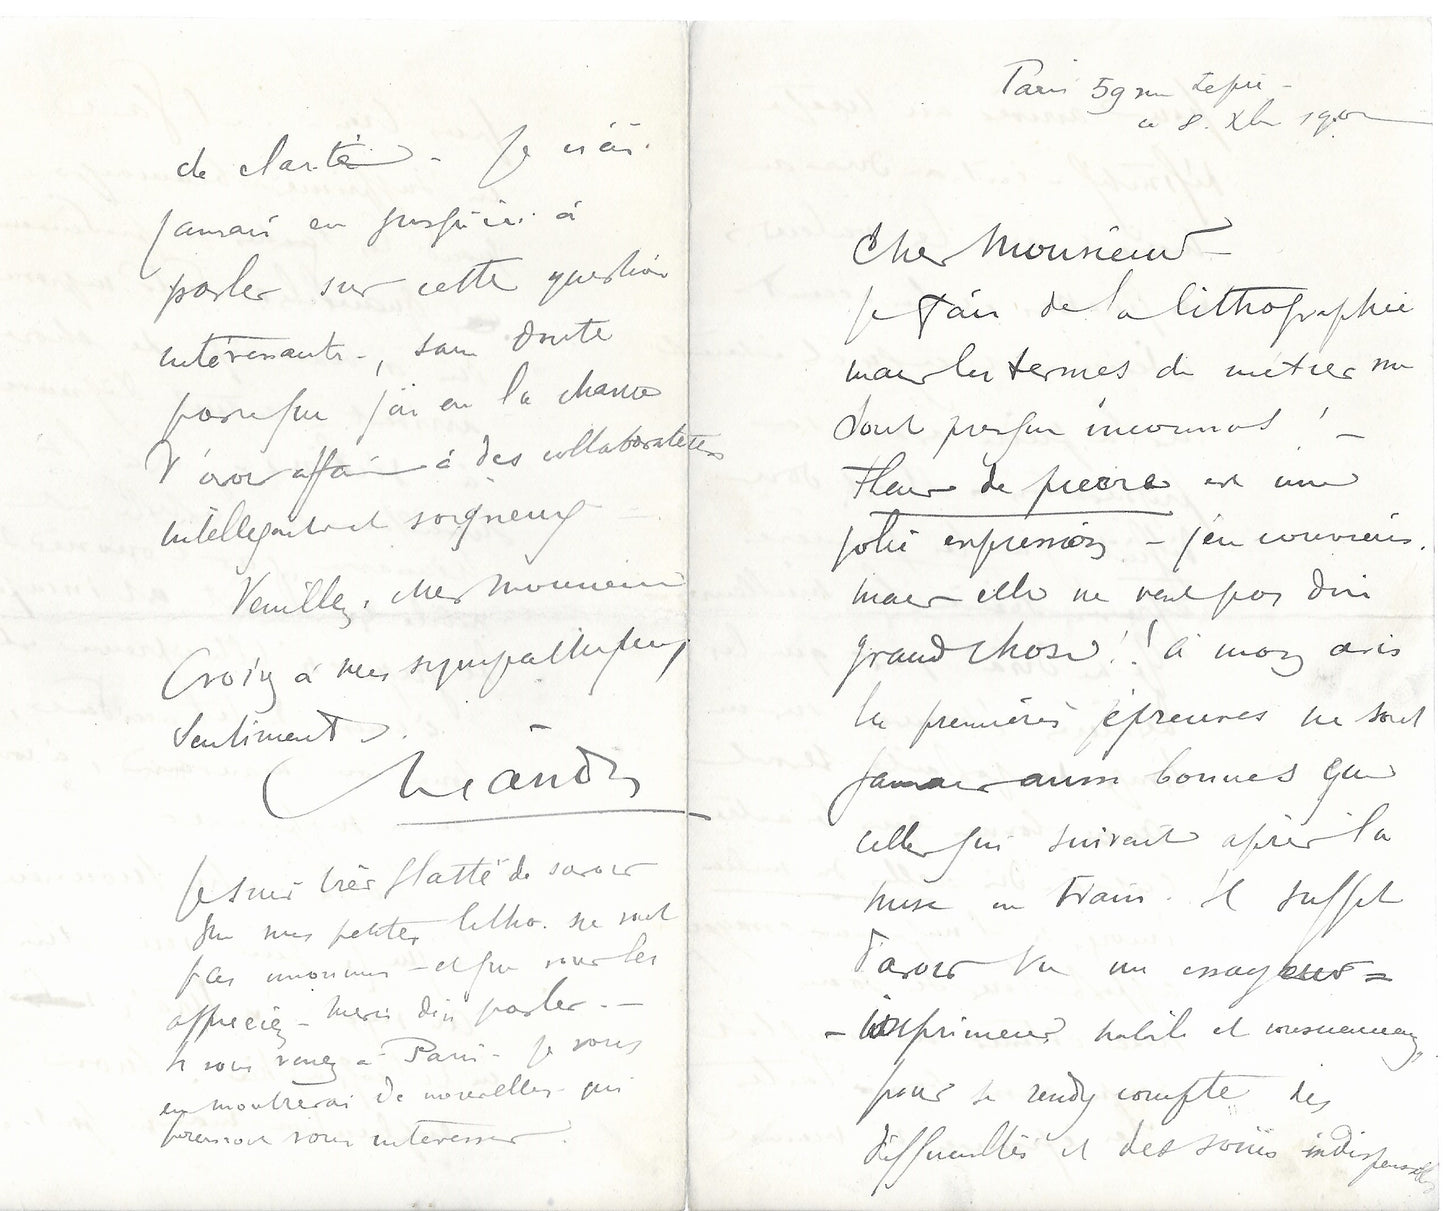 Paris 59 rue Lepic -
ce 8. Xbre 1902
Cher Monsieur -
je fais de la lithographie
mais les termes du métier me
sont presque inconnus ! -
Fleur de pierre est une
jolie expression - j'en conviens,
mais elle ne veut pas dire
grand chose ! ! à mon avis
les premières épreuves ne sont
jamais aussi bonnes que
celles qui suivent après la
mise en train. Il suffit
d'avoir vu un essayeur =
- imprimeur habile et consciencieux,
pour se rendre compte des
difficultés et des soins indispensables
de clarté - Je n'ai
jamais eu jusqu'ici à
parler sur cette question
intéressante -, sans doute
parce que j'ai eu la chance
d'avoir affaire à des collaborateurs
intelligents et soigneux -
Veuillez, cher Monsieur
Croire à mes sympathiques
sentiments.
C Léandre
Je suis très flatté de savoir
que mes petites litho. ne sont
pas inconnues - et que vous les
appréciez - merci d'en parler. -
si vous venez à Paris - je vous
en montrerai de nouvelles - qui
pourront vous intéresser.